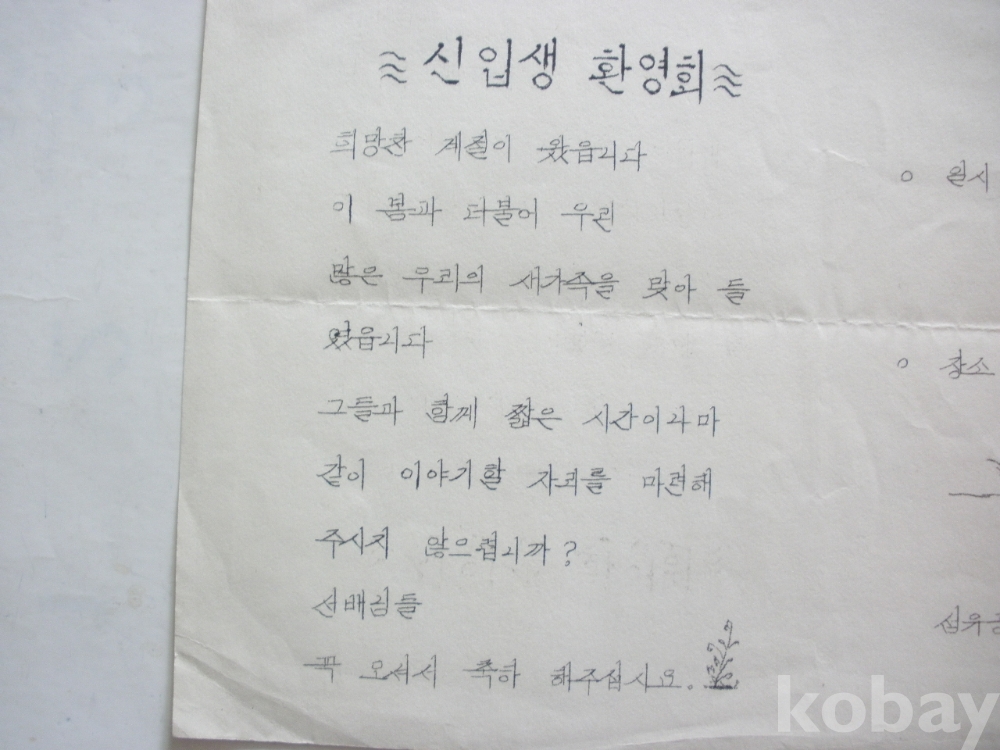 신입생 환영회
희망찬 계절이 왔읍니다
이 봄과 더불어 우린
많은 우리의 새가족을 맞아 들
였읍니다
그들과 함께 짧은 시간이나마
같이 이야기할 자리를 마련해
주시지 않으렵니까?
선배님들
꼭 오셔서 축하 해주십시요.
o 일시
o 장소
섬유공
kobay